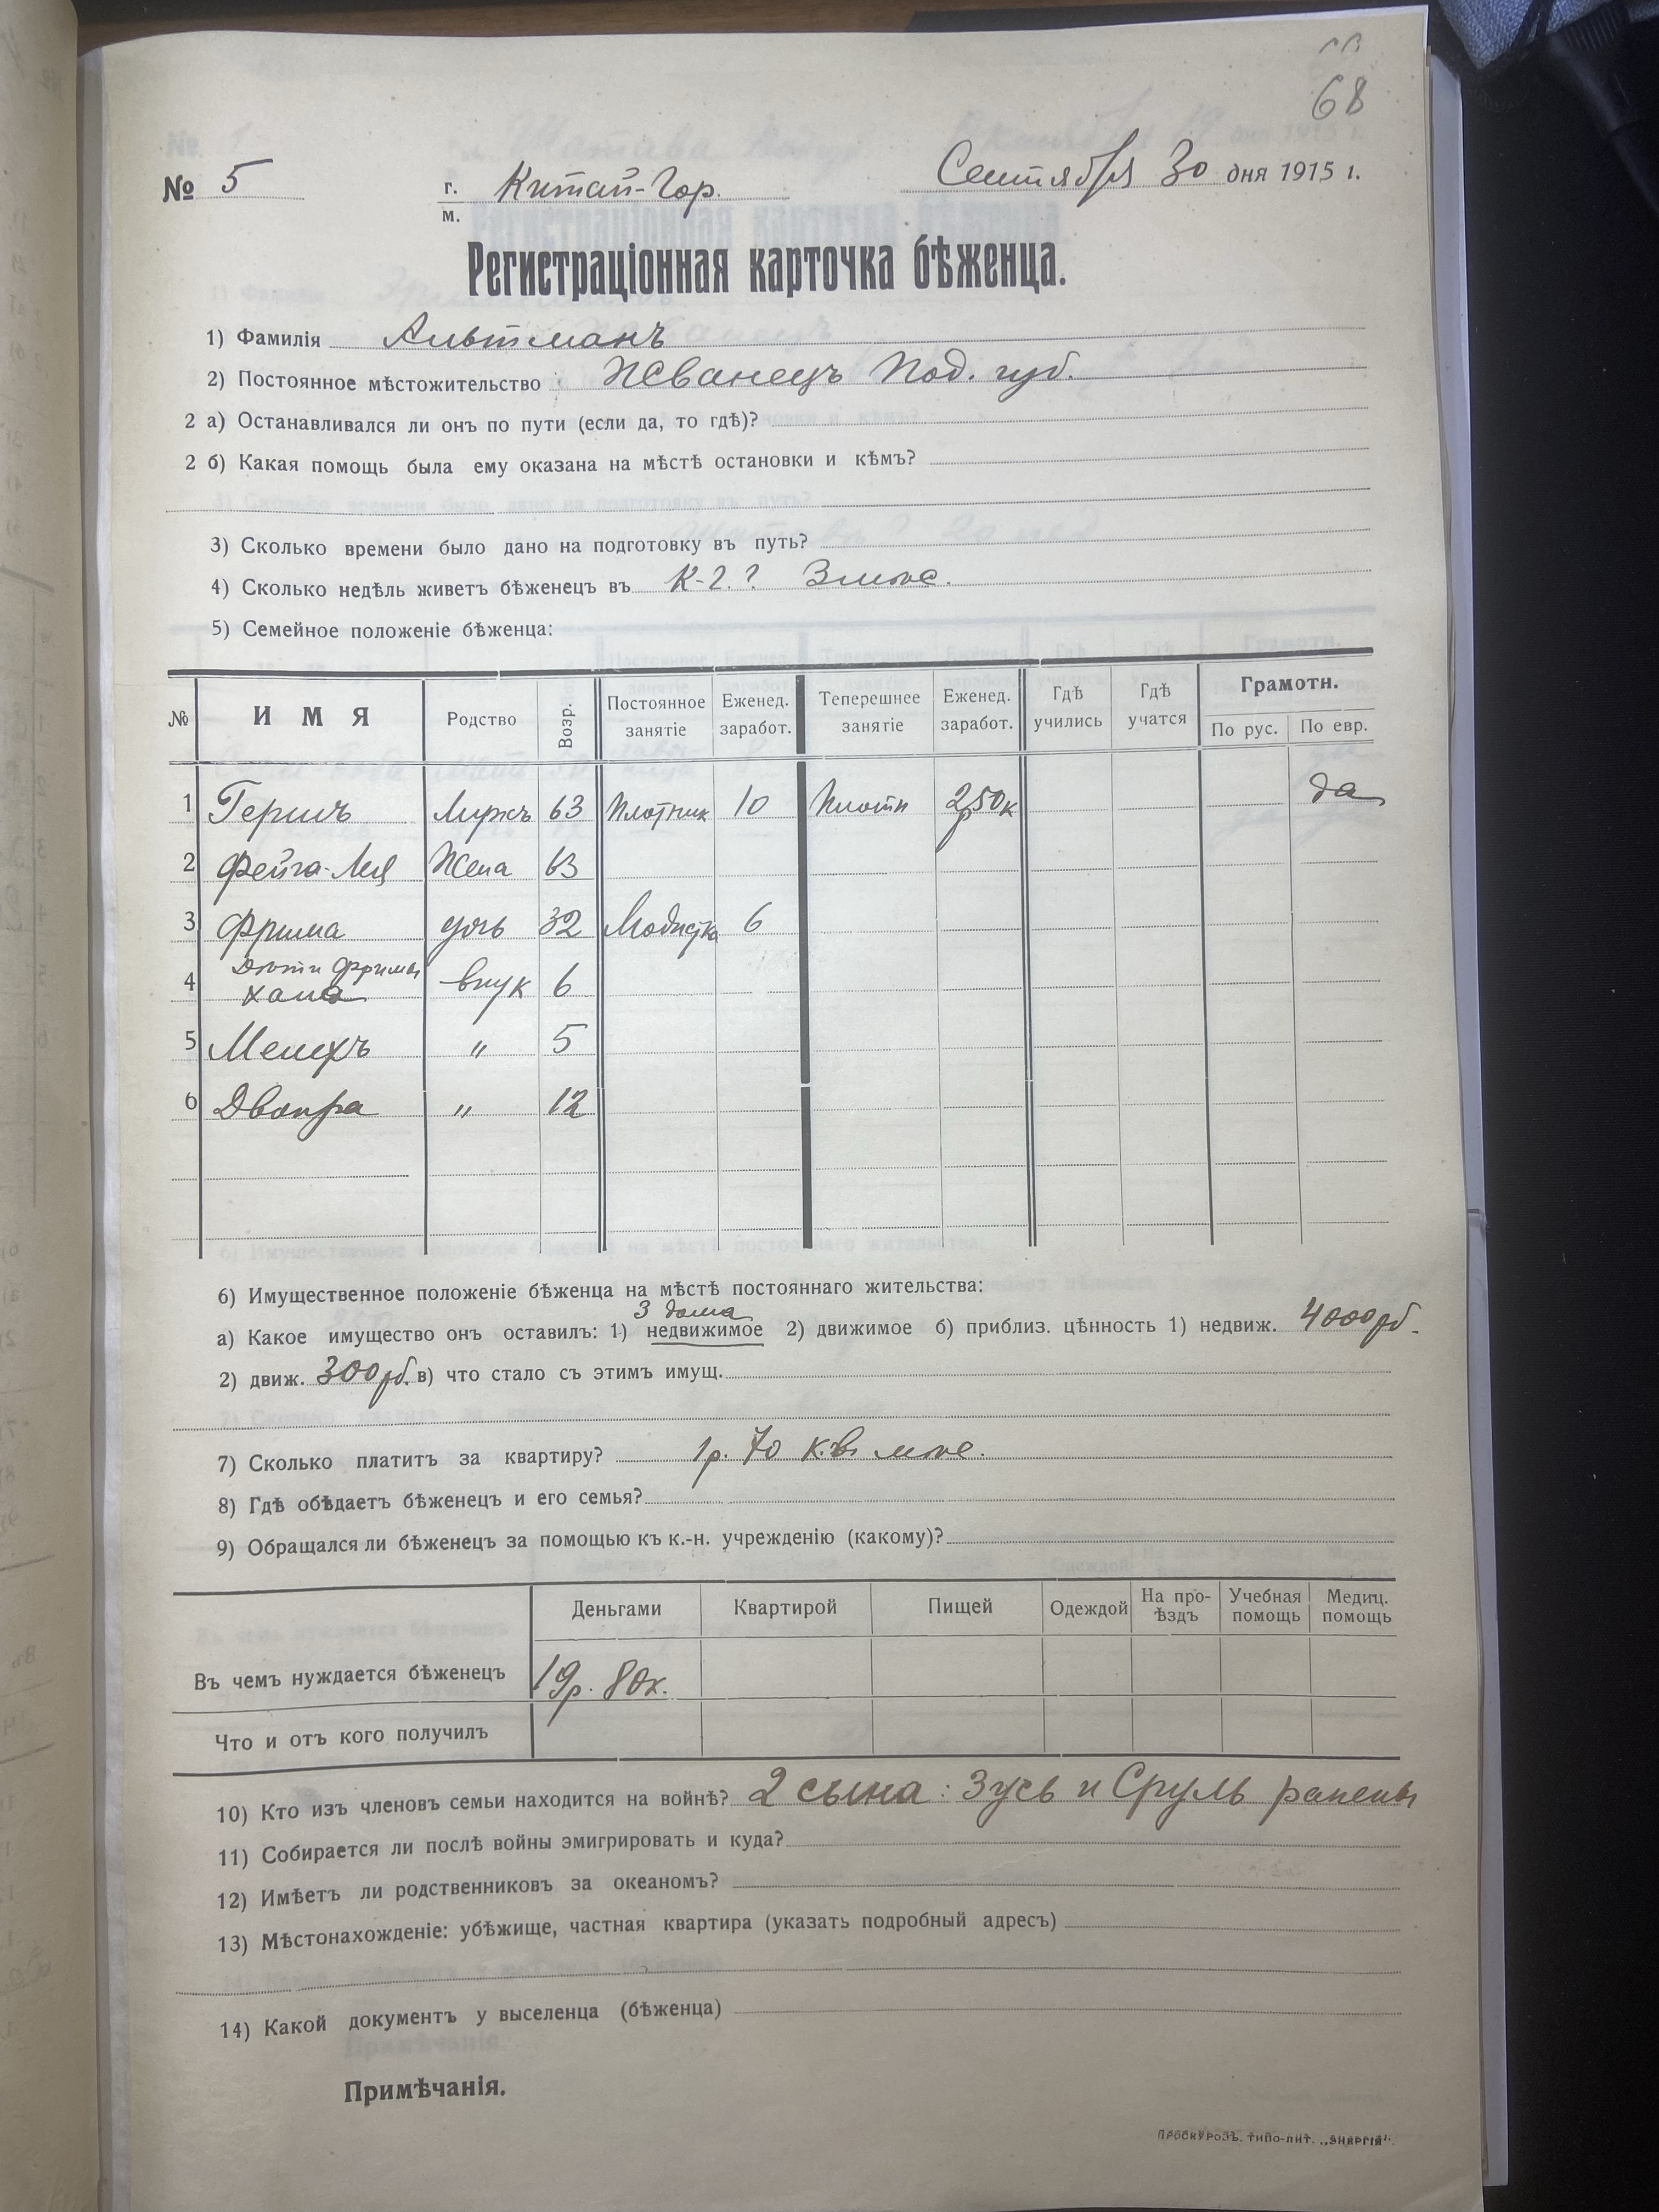 68
№ 5 г. м. Китай-Гор. Сентября 30 дня 1915 г.
Регистраціонная карточка бѣженца.
1) Фамилія Альтманъ
2) Постоянное мѣстожительство Жванецъ Под. губ.
2 а) Останавливался ли онъ по пути (если да, то гдѣ)?
2 б) Какая помощь была ему оказана на мѣстѣ остановки и кѣмъ?
3) Сколько времени было дано на подготовку въ путь?
4) Сколько недѣль живетъ бѣженецъ въ К-Г.? 3 мѣс.
5) Семейное положеніе бѣженца:
№ ИМЯ Родство Возр. Постоянное занятіе Еженед. заработ. Теперешнее занятіе Еженед. заработ. Гдѣ учились Гдѣ учатся Грамотн. По рус. По евр.
1 Гершъ Мужъ 63 Плотник 10 Плотн 2р50к да
2 Фейга-Лея Жена 63
3 Фрима дочь 32 Модистка 6
Дѣти Фримы
4 Хана внук 6
5 Мелехъ " 5
6 Двойра " 12
6) Имущественное положеніе бѣженца на мѣстѣ постояннаго жительства:
3 дома
а) Какое имущество онъ оставилъ: 1) недвижимое 2) движимое б) приблиз. цѣнность 1) недвиж. 4000 рб.
2) движ. 300 рб. в) что стало съ этимъ имущ.
7) Сколько платитъ за квартиру? 1р. 70 к. въ мѣс.
8) Гдѣ обѣдаетъ бѣженецъ и его семья?
9) Обращался ли бѣженецъ за помощью къ к.-н. учрежденію (какому)?
Деньгами Квартирой Пищей Одеждой На проѣздъ Учебная помощь Медиц. помощь
Въ чемъ нуждается бѣженецъ 19р. 80к.
Что и отъ кого получилъ
10) Кто изъ членовъ семьи находится на войнѣ? 2 сына: Зусь и Сруль ранены
11) Собирается ли послѣ войны эмигрировать и куда?
12) Имѣетъ ли родственниковъ за океаномъ?
13) Мѣстонахожденіе: убѣжище, частная квартира (указать подробный адресъ)
14) Какой документъ у выселенца (бѣженца)
Примѣчанія.
ПРОСКУРОВЪ. ТИПО-ЛИТ. „ЭНЕРГІЯ".